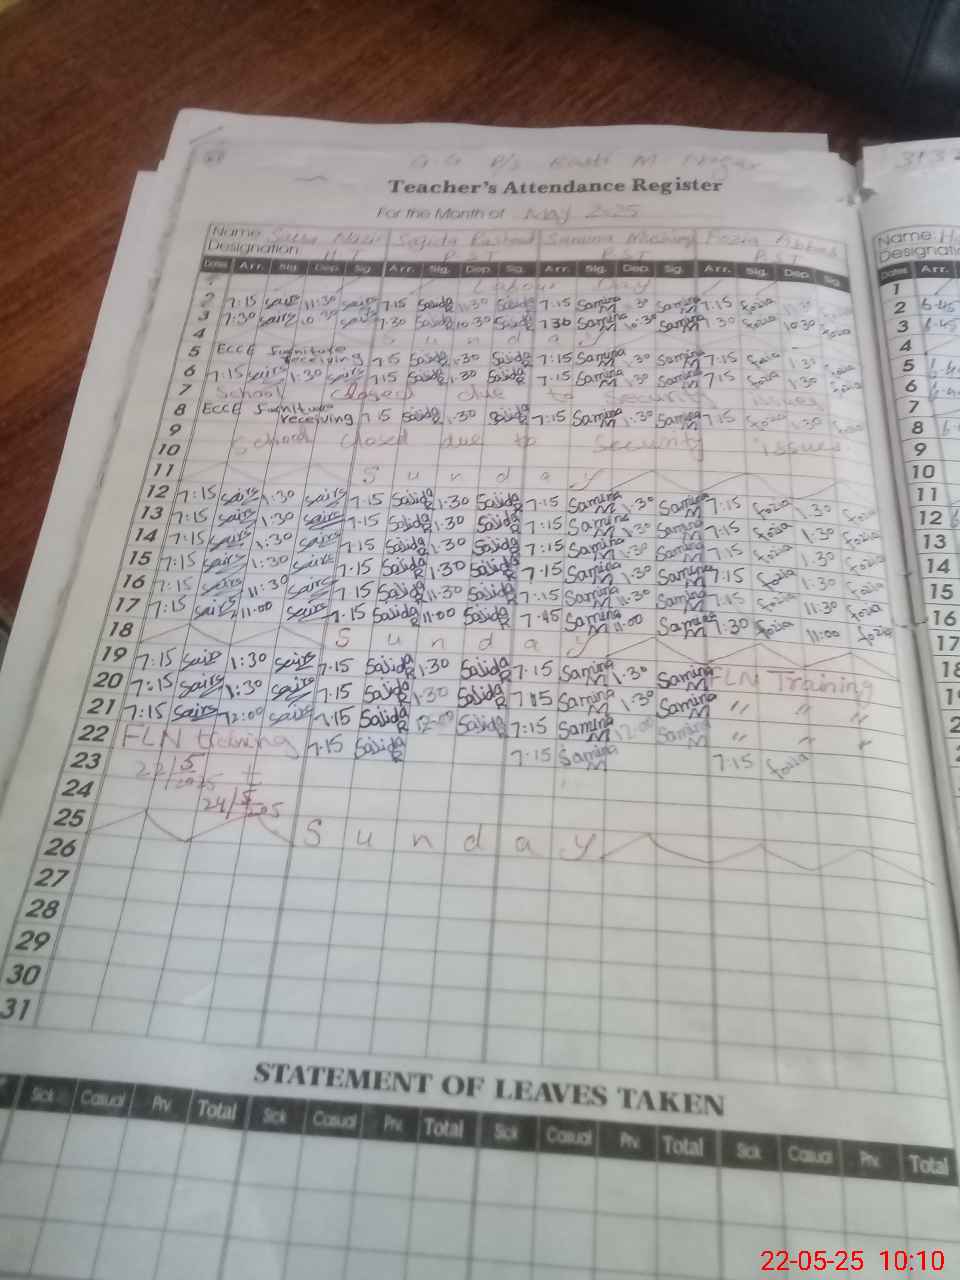 G.G P/S Basti M Nagar
Teacher's Attendance Register
For the Month of May 2025
Name Saira Nazir Sajida Rashid Samina Mushtaq Fozia Abbas
Designation H.T P.S.T P.S.T P.S.T
Dates Arr. Sig. Dep. Sig. Arr. Sig. Dep. Sig. Arr. Sig. Dep. Sig. Arr. Sig. Dep. Sig.
1 Labour Day
2 7:15 saira 11:30 saira 7:15 Sajida R 11:30 Sajida R 7:15 Samina M Samina M 7:15 fozia fozia
3 7:30 saira 10:30 saira 7:30 Sajida R 10:30 Sajida R 7:30 Samina M 10:30 Samina M 7:30 fozia 10:30 fozia
4 Sunday
5 ECCE furniture receiving 7:15 Sajida R 1:30 Sajida R 7:15 Samina M 1:30 Samina M 7:15 fozia 1:30 fozia
6 7:15 saira 1:30 saira 7:15 Sajida R 1:30 Sajida R 7:15 Samina M 1:30 Samina M 7:15 fozia 1:30 fozia
7 School closed due to security issues
8 ECCE furniture receiving 7:15 Sajida R 1:30 Sajida R 7:15 Samina M 1:30 Samina M 7:15 fozia 1:30 fozia
9
10 School closed due to security issues
11 Sunday
12 7:15 saira 1:30 saira 7:15 Sajida R 1:30 Sajida R 7:15 Samina M 1:30 Samina M 7:15 fozia 1:30 fozia
13 7:15 saira 1:30 saira 7:15 Sajida R 1:30 Sajida R 7:15 Samina M 1:30 Samina M 7:15 fozia 1:30 fozia
14 7:15 saira 1:30 saira 7:15 Sajida R 1:30 Sajida R 7:15 Samina M 1:30 Samina M 7:15 fozia 1:30 fozia
15 7:15 saira 1:30 saira 7:15 Sajida R 1:30 Sajida R 7:15 Samina M 1:30 Samina M 7:15 fozia 1:30 fozia
16 7:15 saira 11:30 saira 7:15 Sajida R 11:30 Sajida R 7:15 Samina M 11:30 Samina M 7:15 fozia 11:30 fozia
17 7:15 saira 11:00 saira 7:15 Sajida R 11:00 Sajida R 7:45 Samina M 11:00 Samina M 7:30 fozia 11:00 fozia
18 Sunday
19 7:15 saira 1:30 saira 7:15 Sajida R 1:30 Sajida R 7:15 Samina M 1:30 Samina M FLN Training
20 7:15 saira 1:30 saira 7:15 Sajida R 1:30 Sajida R 7:15 Samina M 1:30 Samina M " " "
21 7:15 saira 12:00 saira 7:15 Sajida R 12:00 Sajida R 7:15 Samina M 12:00 Samina M " " "
22 FLN training 7:15 Sajida R 7:15 Samina M 7:15 fozia
23 22/5/2025 t
24 24/5/2025
25 Sunday
26
27
28
29
30
31
STATEMENT OF LEAVES TAKEN
Sick Casual Prv. Total Sick Casual Prv. Total Sick Casual Prv. Total Sick Casual Prv. Total
Name:
Dates Arr.
1
2 6:45
3 6:45
4
5
6
7
8
9
10
11
12
13
14
15
16
17
22-05-25 10:10